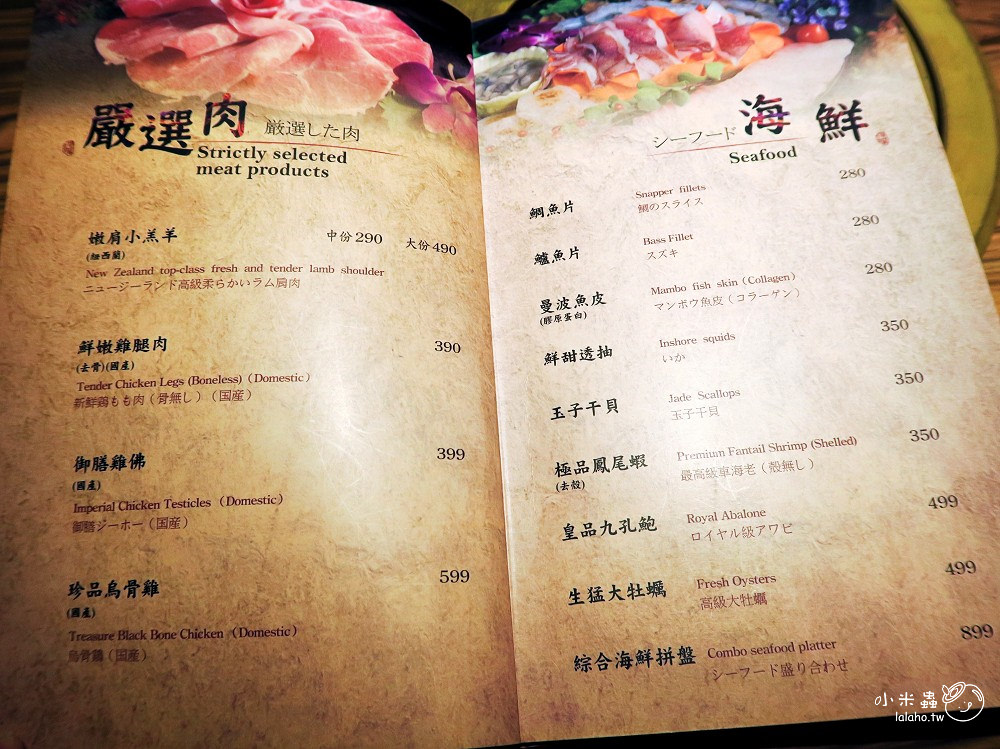 嚴選肉 厳選した肉
Strictly selected
meat products
嫩肩小羔羊 中份290 大份490
(紐西蘭)
New Zealand top-class fresh and tender lamb shoulder
ニュージーランド高級柔らかいラム肩肉
鮮嫩雞腿肉 390
(去骨)(國產)
Tender Chicken Legs (Boneless)（Domestic）
新鮮鶏もも肉（骨無し）（国産）
御膳雞佛 399
(國產)
Imperial Chicken Testicles（Domestic）
御膳ジーホー（国産）
珍品烏骨雞 599
(國產)
Treasure Black Bone Chicken（Domestic）
烏骨鶏（国産）
シーフード 海鮮
Seafood
鯛魚片 Snapper fillets 280
鯛のスライス
鱸魚片 Bass Fillet 280
スズキ
曼波魚皮 Mambo fish skin（Collagen） 280
(膠原蛋白) マンボウ魚皮（コラーゲン）
鮮甜透抽 Inshore squids 350
いか
玉子干貝 Jade Scallops 350
玉子干貝
極品鳳尾蝦 Premiun Fantail Shrimp (Shelled) 350
(去殼) 最高級車海老（殻無し）
皇品九孔鮑 Royal Abalone 499
ロイヤル級アワビ
生猛大牡蠣 Fresh Oysters 499
高級大牡蠣
綜合海鮮拼盤 Combo seafood platter 899
シーフード盛り合わせ
小米蟲
lalaho.tw